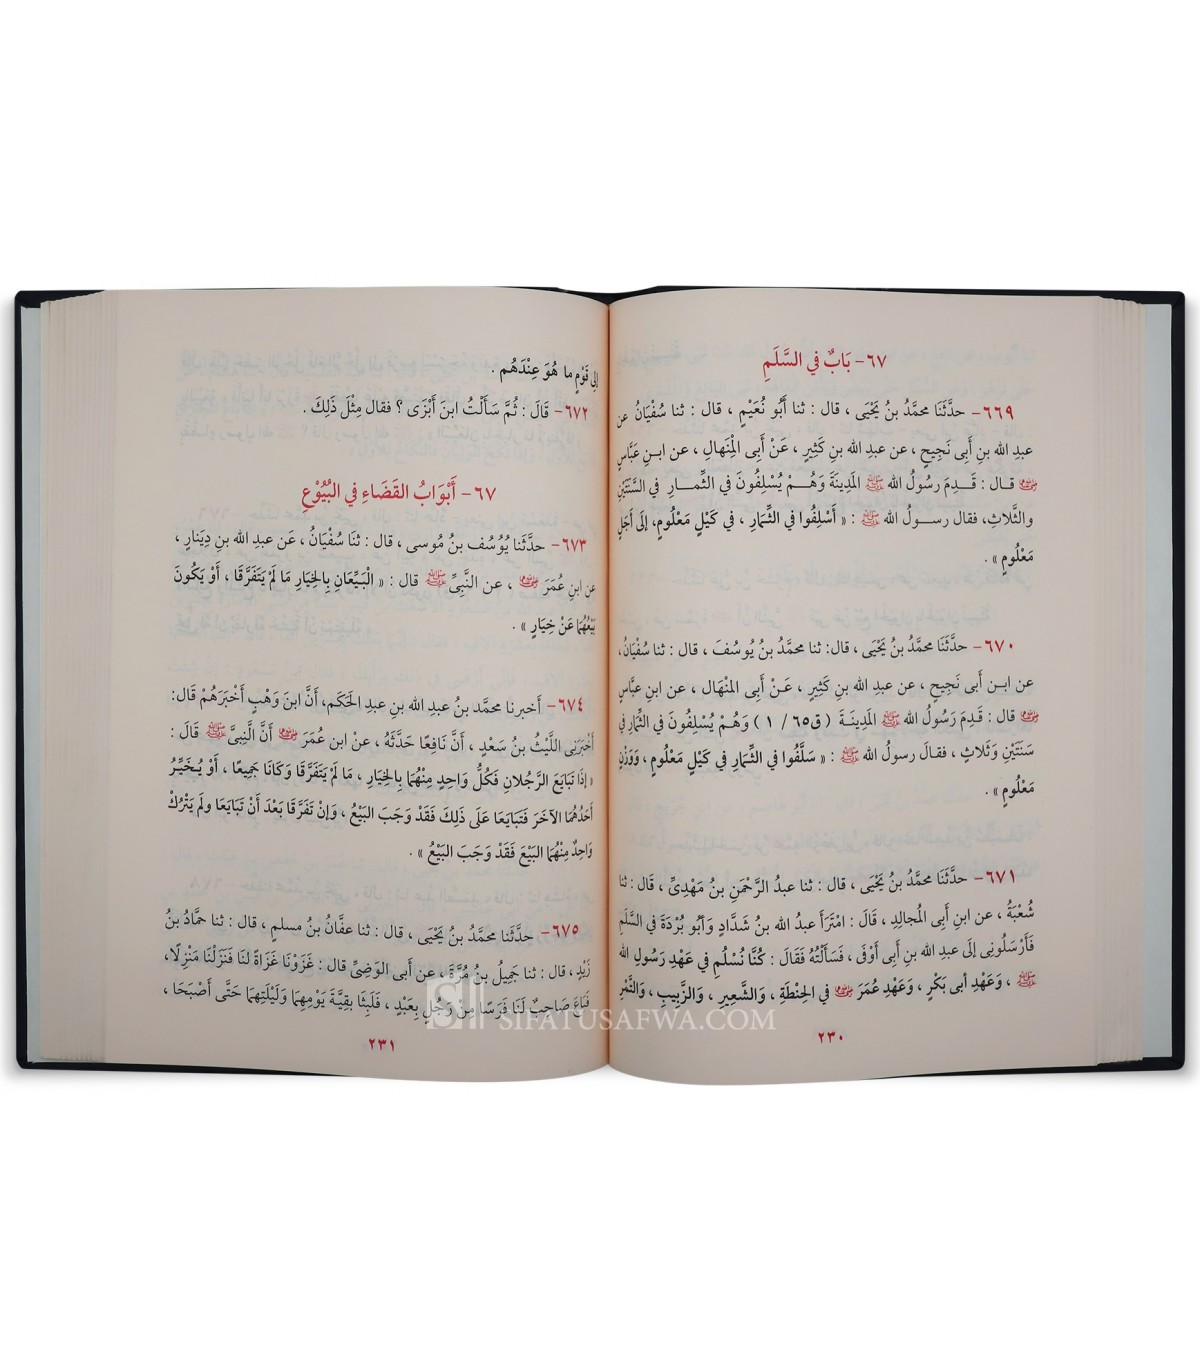 ٦٧- بَابٌ في السَّلَمِ
٦٦٩- حدَّثَنَا محمَّدُ بنُ يَحْيَى ، قال : ثنا أَبُو نُعَيْمٍ ، قال : ثنا سُفْيَانُ عن
عبدِ الله بنِ أَبِى نَجِيحٍ ، عن عبدِ الله بنِ كَثِيرٍ ، عَنْ أَبِى المِنْهالِ ، عن ابنِ عَبَّاسٍ
رضي الله عنهما قال : قَدِمَ رسُولُ الله ﷺ المَدِينَةَ وَهُمْ يُسْلِفُونَ في الثِّمارِ في السَّنَتَيْنِ
والثَّلاثِ، فقال رسولُ الله ﷺ : « أَسْلِفُوا في الثِّمَارِ ، في كَيْلٍ مَعْلُومٍ، إلَى أَجَلٍ
مَعْلُومٍ » .
٦٧٠- حدَّثَنَا محمَّدُ بنُ يَحْيَى ، قال: ثنا محمَّدُ بنُ يُوسُفَ ، قال : ثنا سُفْيَانُ،
عن ابنِ أَبِى نَجِيحٍ ، عن عبدِ الله بنِ كَثِيرٍ ، عَنْ أَبِى المنْهَال ، عن ابنِ عبَّاسٍ
رضي الله عنهما قال : قَدِمَ رَسُولُ الله ﷺ المَدِينَةَ ( ق٦٥ / ١ ) وَهُمْ يُسْلِفُونَ في الثِّمَارِ في
سَنَتَيْنِ وَثَلاثٍ ، فقالَ رسولُ الله ﷺ : « سَلَّفُوا في الثِّمَارِ في كَيْلٍ مَعْلُومٍ ، وَوَزْنٍ
مَعْلُومٍ » .
٦٧١- حدَّثَنَا محمَّدُ بنُ يَحْيَى ، قال : ثنا عبدُ الرَّحْمَنِ بنُ مَهْدِىِّ ، قَال : ثنا
شُعْبَةُ ، عن ابنِ أَبِى المُجالِدِ ، قَالَ : امْتَرَأَ عبدُ الله بنُ شَدَّادٍ وَأبو بُرْدَةَ في السَّلَمِ
فَأَرْسَلُونِى إلَى عبدِ الله بنِ أَبِى أَوْفَى ، فَسَأَلْتُهُ فَقَالَ : كُنَّا نُسْلُمِ في عَهْدِ رَسُولِ الله
ﷺ ، وَعَهْدِ أبى بَكْرٍ ، وَعَهْدِ عُمَرَ رضي الله عنهما في الحِنْطَةِ ، وَالشَّعِيرِ ، وَالزَّبِيبِ ، وَالتَّمْرِ
٢٣٠
إلى قَوْمٍ ما هُوَ عِنْدَهُم .
٦٧٢- قَالَ : ثُمَّ سَأَلْتُ ابنَ أَبْزَى ؟ فقال مِثْلَ ذَلِكَ .
٦٧- أَبْوَابُ القَضَاءِ في البُيُوْعِ
٦٧٣- حدَّثَنا يُوُسُف بنُ مُوسى ، قال : ثنَا سُفْيَانُ ، عَن عبدِ الله بنِ دِينَارٍ ،
عن ابنِ عُمَرَ رضي الله عنهما ، عن النَّبِىِّ ﷺ قال : « الْبَيِّعَانِ بِالخِيَارِ مَا لَمْ يَتَفَرَّقَا ، أَوْ يَكُونَ
بَيْعُهُمَا عَنْ خِيَارٍ » .
٦٧٤- أَخبرنا محمد بنُ عبدِ الله بنِ عبدِ الحَكَم، أَنَّ ابنَ وَهْبٍ أَخْبَرَهُمْ قَالَ:
أَخْبَرَنِى اللَّيْثُ بنُ سَعْدٍ ، أَنَّ نَافِعًا حَدَّثَهُ ، عَنْ ابن عُمَرَ رضي الله عنهما أَنَّ النَّبِىَّ ﷺ قَالَ :
« إذَا تَبَايَعَ الرَّجُلانِ فَكُلُّ وَاحِدٍ مِنْهُمَا بِالخِيَارِ ، مَا لَمْ يَتَفَرَّقَا وَكَانَا جَمِيعًا ، أَوْ يُخَيِّرُ
أَحَدُهُمَا الآخَرَ فَتَبَايَعَا عَلَى ذَلِكَ فَقَدْ وَجَبَ البَيْعُ ، وَإنْ تَفَرَّقَا بَعْدَ أَنْ تَبَايَعَا ولَم يَتْرُكْ
وَاحِدٌ مِنْهُمَا البَيْعَ فَقَدْ وَجَبَ البَيْعُ » .
٦٧٥- حدَّثَنا محمَّدُ بنُ يَحْيَى ، قال : ثنا عفَّانُ بنُ مسلمٍ ، قال : ثنا حمَّادُ بنُ
زَيْدٍ ، قال : ثنا جَمِيلُ بنُ مُرَّةَ ، عن أَبى الوَضِئِ قال : غَزَوْنَا غَزَاةً لَنا فَنَزَلْنَا مَنْزِلًا،
فَبَاعَ صَاحِبٌ لَنَا فَرَسًا مِنْ رَجُلٍ بِعَبْدٍ ، فَلَبِثَا بقِيَّةَ يَوْمِهِمَا وَلَيْلَتِهِمَا حَتَّى أَصْبَحَا ،
٢٣١
SIFATUSAFWA.COM